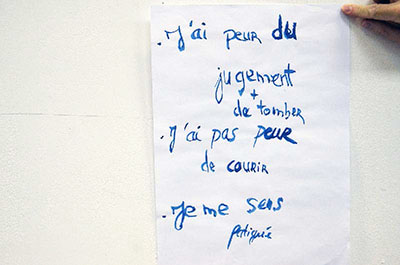 . J'ai peur du
jugement
+
de tomber
. J'ai pas peur
de courir
. Je me sens
fatiguée